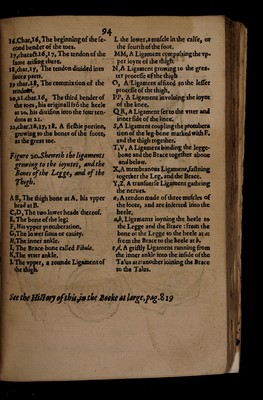 94
16,Char,16, The beginning of the se-
cond bender of the toes.
17,charact.16,17, The tendon of the
same arising there.
8,char.17, The tendon divided into
foure parts.
39,char.18, The commixtion of the
tendons,
20,21.char.16, The third bender of
the toes, his originall frõ the heele
at 20. his division into the four ten-
dons at 21.
22,char.16,17,18. A fleshie portion,
growing to the bones of the foote,
at the great toe.
Figure 20. Sheweth the ligaments
growing to the ioyntes, and the
Bones of the Legge, and of the
Thigh.
A B, The thigh bone at A, his vpper
head at B.
C,D, The two lower heads thereof.
E, The bone of the leg;
F, His vpper protuberation,
G, The lower sinus or cavity.
H, The inner ankle.
I, The Brace-bone called Fibula.
K, The vtter ankle.
L The vpper, a rounde Ligament of
the thigh.
L the lower, a muscle in the calfe, or
the fourth of the foot.
MM, A Ligament compassing the vp-
per ioynt of the thigh.
N, A Ligament growing to the grea-
ter processe of the thigh
O, A Ligament affixed to the lesser
processe of the thigh,
P P, A Ligament involving the ioynt
of the knee.
Q R, A Ligament set to the vtter and
inner side of the knee.
S, A Ligament coupling the promben
tion of the leg-bone marked with F.
and the thigh together,
T,V, A Ligament binding the legge-
bone and the Brace together aboue
and below.
X, A membranous Ligament, fastning
together the Leg, and the Brace.
Y,Z, A transuerse Ligament gathring
the nerues.
A tendon made of three muscles of
the foote, and are inserted into the
heele.
a,b, Ligaments ioyning the heele to
the Legge and the Brace : from the
bone of the Legge to the heele at a:
from the Brace to the heele at b.
A gristly Ligament running from
the inner ankle into the inside of the
Talus at another ioining the Brace
to the Talus.
See the History of this, in the Booke at large, pag. 819